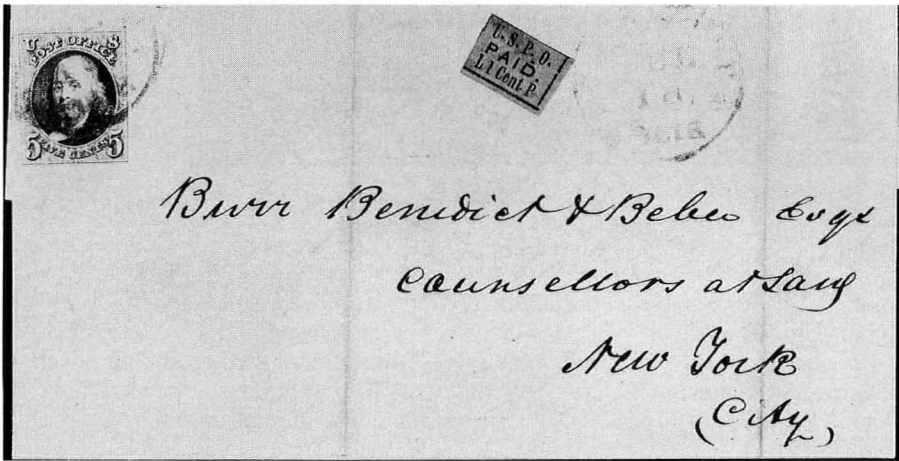 U S
POST OFFICE
5 FIVE CENTS 5
U.S.P.O.
PAID.
1 Cent P.
Burr Benedict & Beebe Esqs
Counsellors at Law
New York
(City)